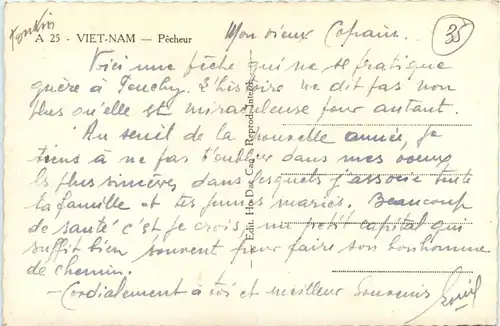 Tonkin
A 25 - VIET-NAM — Pêcheur
35
Mon vieux Copain,
Voici une pêche qui ne se pratique
guère à Touchy. L'histoire ne dit pas non
plus qu'elle est miraculeuse pour autant.
Au seuil de la nouvelle année, je
tiens à ne pas t'oublier dans mes voeux
les plus sincères, dans lesquels j'associe toute
la famille et tes jeunes mariés. Beaucoup
de santé c'est je crois, un petit capital qui
suffit bien souvent pour faire son bonhomme
de chemin.
- Cordialement à toi et meilleur Souvenir
Edit. Ho-Dac Cao - Reprod. Interdite